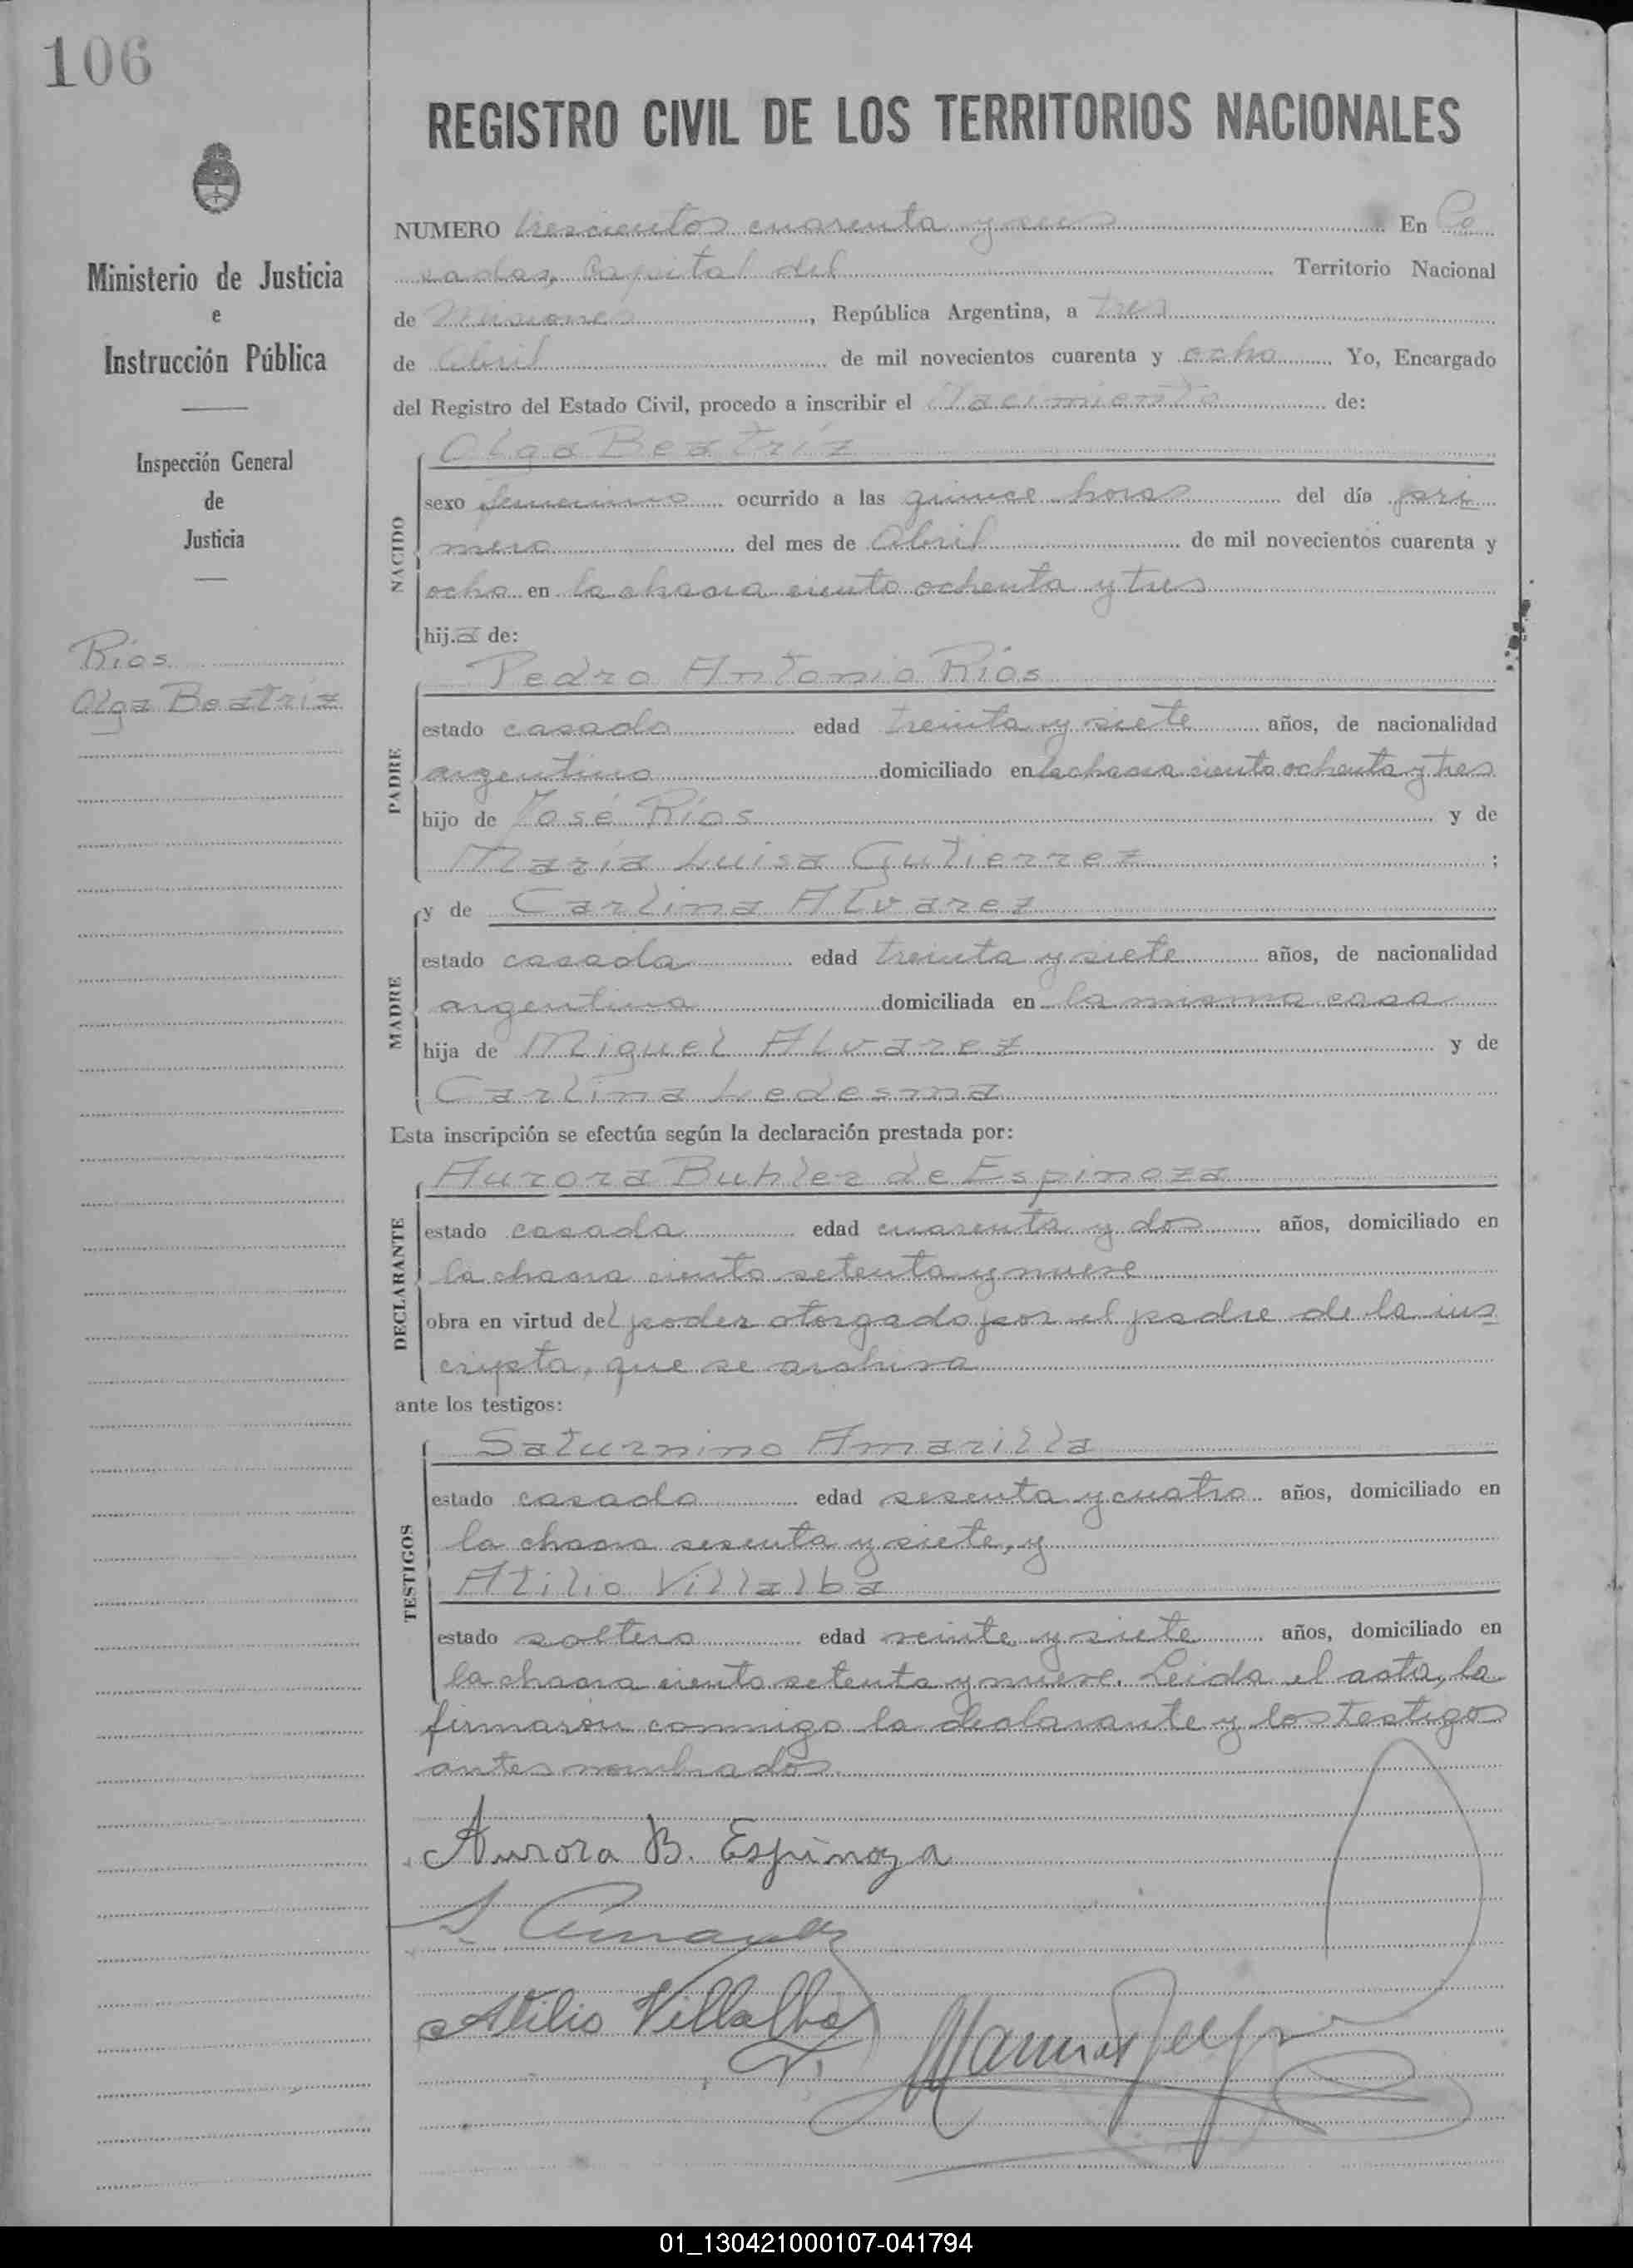 106
REGISTRO CIVIL DE LOS TERRITORIOS NACIONALES
Ministerio de Justicia
e
Instrucción Pública
Inspección General
de
Justicia
Ríos
Olga Beatríz
NUMERO trescientos cuarenta y seis En Po
sadas, Capital del Territorio Nacional
de Misiones, República Argentina, a tres
de Abril de mil novecientos cuarenta y ocho Yo, Encargado
del Registro del Estado Civil, procedo a inscribir el Nacimiento de:
NACIDO
Olga Beatríz
sexo femenino ocurrido a las quince horas del día pri
mero del mes de Abril de mil novecientos cuarenta y
ocho en la chacra ciento ochenta y tres
hija de:
PADRE
Pedro Antonio Ríos
estado casado edad treinta y siete años, de nacionalidad
argentino domiciliado en la chacra ciento ochenta y tres
hijo de José Ríos y de
María Luisa Gutierrez ;
MADRE
y de Carlina Alvarez
estado casada edad treinta y siete años, de nacionalidad
argentina domiciliada en la misma casa
hija de Miguel Alvarez y de
Carlina Ledesma
Esta inscripción se efectúa según la declaración prestada por:
DECLARANTE
Aurora Buhler de Espinoza
estado casada edad cuarenta y dos años, domiciliado en
la chacra ciento setenta y nueve
obra en virtud del poder otorgado por el padre de la ins
cripta, que se archiva
ante los testigos:
TESTIGOS
Saturnino Amarilla
estado casado edad sesenta y cuatro años, domiciliado en
la chacra sesenta y siete, y
Atilio Villalba
estado soltero edad veinte y siete años, domiciliado en
la chacra ciento setenta y nueve. Leida el acta, la
firmaron conmigo la declarante y los testigos
antes nombrados.
Aurora B. Espinoza
S Amarilla
Atilio Villalba
01_130421000107-041794